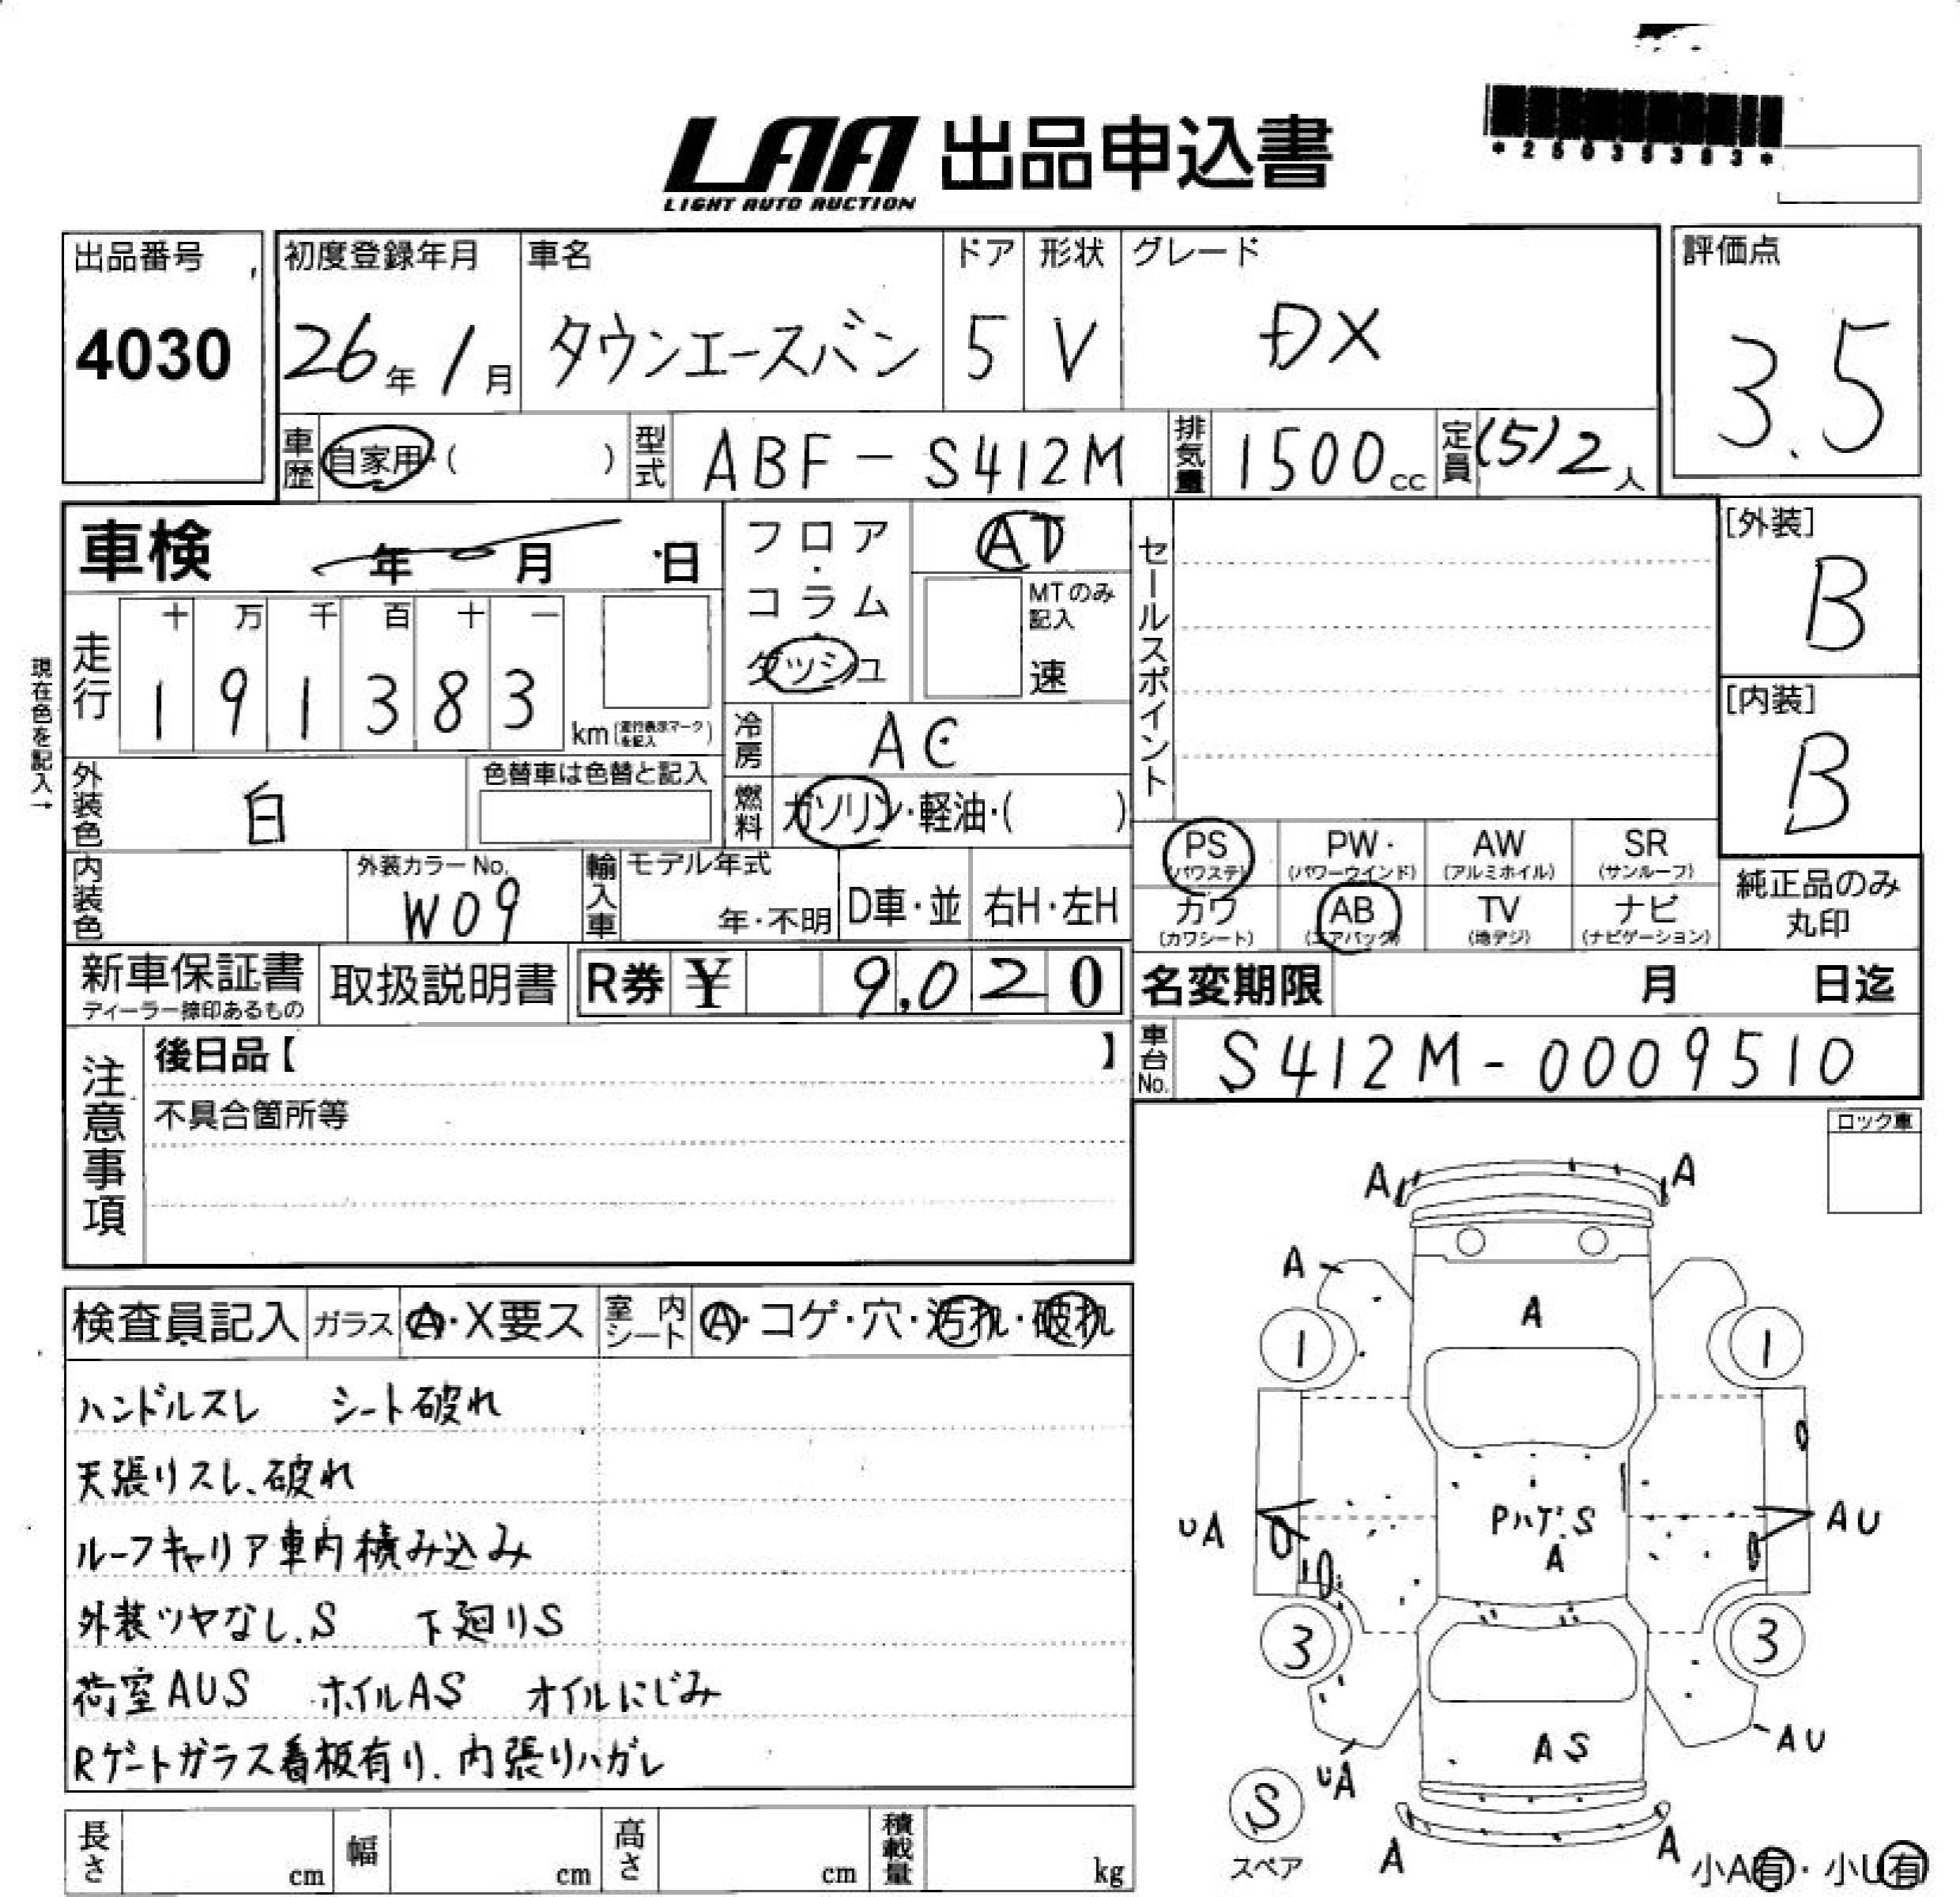 LAA 出品申込書
LIGHT AUTO AUCTION
*25035383*
出品番号
4030
初度登録年月
26年1月
車名
タウンエースバン
ドア
5
形状
V
グレード
DX
評価点
3.5
車歴 自家用・( )
型式 ABF-S412M
排気量 1500cc
定員 (5)2人
車検 年 月 日
フロア・コラム・ダッシュ
AT
MTのみ記入
速
セールスポイント
[外装]
B
[内装]
B
現在色を記入→
走行
十 万 千 百 十 一
1 9 1 3 8 3
km (走行表示マークを記入)
冷房 AC
燃料 ガソリン・軽油・( )
外装色 白
色替車は色替と記入
内装色
外装カラーNo.
W09
輸入車
モデル年式
年・不明
D車・並
右H・左H
PS (パワステ)
PW・ (パワーウインド)
AW (アルミホイル)
SR (サンルーフ)
カワ (カワシート)
AB (エアバック)
TV (地デジ)
ナビ (ナビゲーション)
純正品のみ丸印
新車保証書
ディーラー捺印あるもの
取扱説明書
R券 ¥ 9,020
名変期限 月 日迄
車台No. S412M-0009510
注意事項
後日品【 】
不具合箇所等
ロック車
検査員記入 ガラス A・X要ス 室内シート A・コゲ・穴・汚れ・破れ
ハンドルスレ シート破れ
天張リスレ、破れ
ルーフキャリア車内積み込み
外装ツヤなし.S 下廻りS
荷室AUS ホイルAS オイルにじみ
Rゲートガラス看板有り.内張りハガレ
長さ cm 幅 cm 高さ cm 積載量 kg
A A
A
A
1 1
PハゲS
A
UA AU
3 3
AS
AU
UA
S
スペア
A A
小A有・小U有